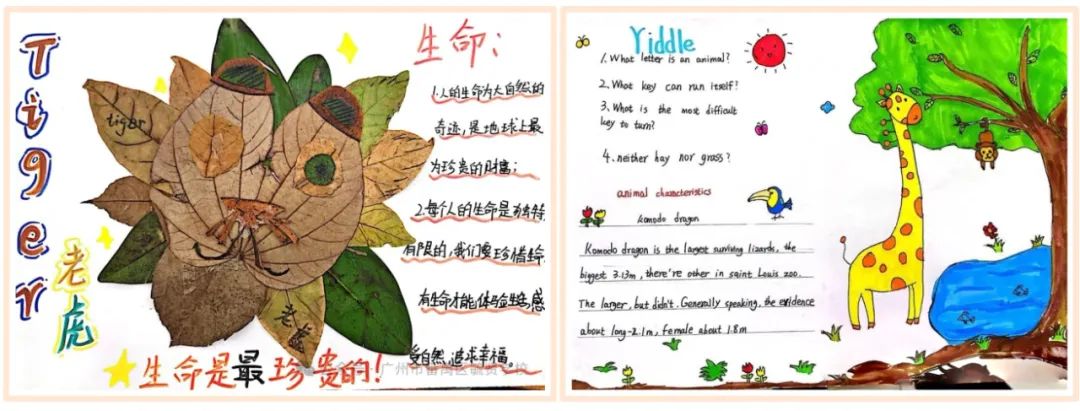 Tiger
老虎
tiger
老虎
生命：
1.人的生命为大自然的
奇迹，是地球上最
为珍贵的财富；
2.每个人的生命是有独特
有限的，我们要珍惜生命
有生命才能体会生活，感
受自然，追求幸福
生命是最珍贵的！
Yiddle
1. What letter is an animal?
2. What key can run itself?
3. What is the most difficult
key to turn?
4. neither hay nor grass?
animal characteristics
komodo dragon
Komodo dragon is the largest surviving lizards, the
biggest 3.13m, there're other in saint Louis zoo.
The larger, but didn't. Generally speaking, the evidence
about long-2.1m, female about 1.8m